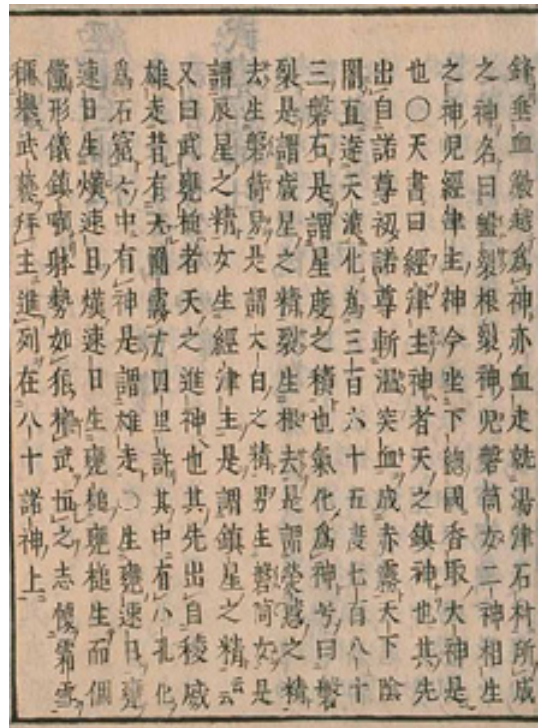 鋒垂血激越爲神亦血走就湯津石村所成
之神名曰磐裂根裂神兒磐筒女二神相生
之神兒經津主神今坐下總國香取大神是
也〇天書曰經津主神者天之鎮神也其先
出自諾尊初諾尊斬遇突血成赤霧天下陰
闇直達天漢化爲三百六十五度七百八十
三磐石是謂星度之積也氣化爲神号曰磐
裂是謂歲星之精裂生根去是謂熒惑之精
去生磐筒男是謂大白之精男生磐筒女是
謂辰星之精女生經津主是謂鎮星之精云云
又曰武甕槌者天之進神也其先出自稜威
雄走昔有大爾露女四里許其中有小孔化
爲石窟々中有神是謂雄走〇生甕速日甕
速日生熯速日熯速日生甕槌甕槌生而倜
儻形儀鎮嘱躰勢如狼據武恒之志懷霜雪
稱擧武藝拜主進列在八十諾神上